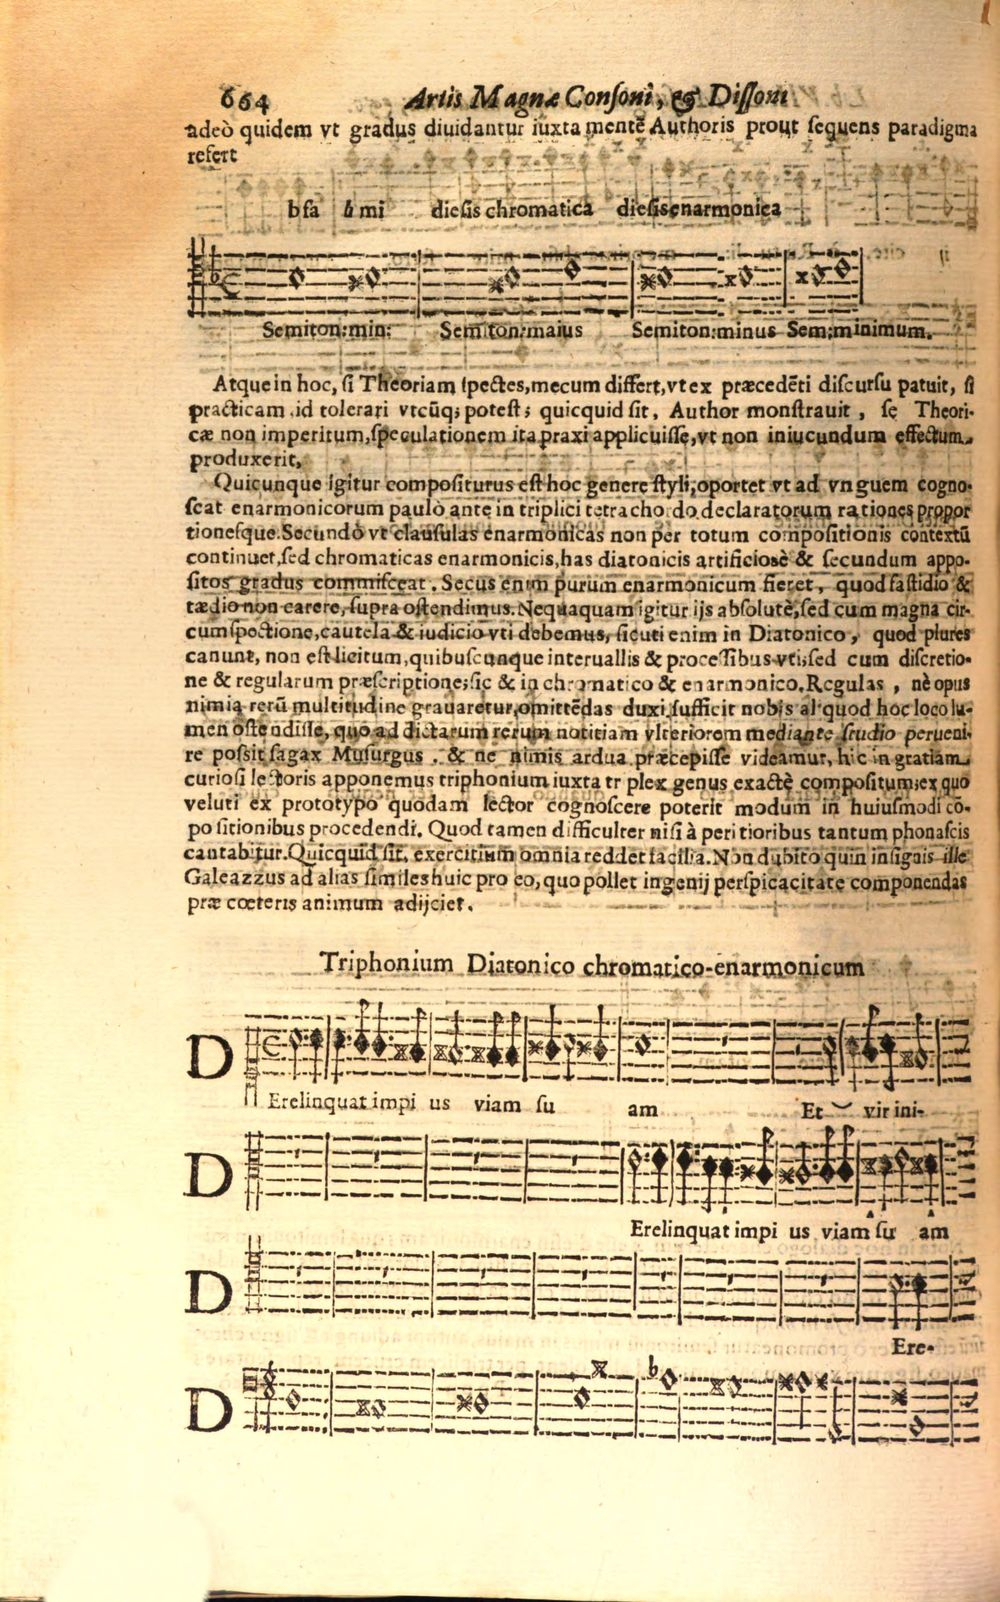 664 Artis Magnæ Consoni, & Dissoni
adeò quidem vt gradus diuidantur iuxta mentē Authoris prout sequens paradigma
refert
b fa b mi diesis chromatica diesis enarmonica
Semiton:min: Semiton:maius Semiton:minus Sem:minimum.
Atque in hoc, si Theoriam spectes, mecum differt, vt ex præcedēti discursu patuit, si
practicam, id tolerari vtcūq; potest; quicquid sit, Author monstrauit, se Theori-
cæ non imperitum, speculationem ita praxi applicuisse, vt non iniucundum effectum
produxerit.
Quicunque igitur compositurus est hoc genere styli, oportet vt ad vnguem cogno-
scat enarmonicorum paulò ante in triplici tetrachordo declaratorum rationes propor
tionesque. Secundò vt clausulas enarmonicas non per totum compositionis contextū
continuet, sed chromaticas enarmonicis, has diatonicis artificiosè & secundum appo-
sitos gradus commisceat. Secus enim purum enarmonicum fieret, quod fastidio &
tædio non carere, supra ostendimus. Nequaquam igitur ijs absolutè, sed cum magna cir-
cumspectione, cautela & iudicio vti debemus, sicuti enim in Diatonico, quod plures
canunt, non est licitum, quibuscunque interuallis & processibus vti; sed cum discretio-
ne & regularum præscriptione; sic & in chromatico & enarmonico. Regulas, nè opus
nimia rerū multitudine grauaretur, omittēdas duxi, sufficit nobis aliquod hoc loco lu-
men ostēdisse, quo ad dictarum rerum notitiam vlteriorem mediante studio perueni-
re possit sagax Musurgus. & ne nimis ardua præcepisse videamur, hic in gratiam
curiosi lectoris apponemus triphonium iuxta triplex genus exactè compositum; ex quo
veluti ex prototypo quodam lector cognoscere poterit modum in huiusmodi cō-
positionibus procedendi. Quod tamen difficulter nisi à peritioribus tantum phonascis
cantabitur. Quicquid sit, exercitium omnia reddet facilia. Non dubito quin insignis ille
Galeazzus ad alias similes huic pro eo, quo pollet ingenij perspicacitate componendas
præ cœteris animum adijciet.
Triphonium Diatonico chromatico-enarmonicum
D
Erelinquat impi us viam su am Et vir ini-
D
Erelinquat impi us viam su am
D
Ere-
D